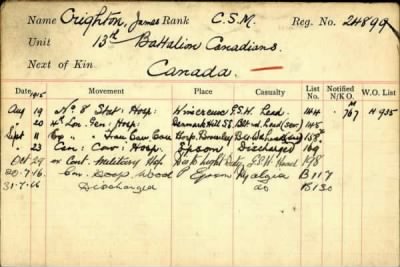 Name Crighton, James Rank C.S.M. Reg. No. 24899
Unit 13th Battalion Canadians.
Next of Kin
Canada. —
Date 1915 Movement Place Casualty List No. Notified N/K O. W.O. List
Aug 19 No 8 Stat: Hosp: Wimereux G.S.W. Head. 144 M 767 H 935
" 20 4th Lon. Gen: Hosp: Denmark Hill SE. (Sev) 145
Sept 11 Hosp. Bromley 158
" 23 Can: Conv: Hosp. Epsom Discharged 169
Oct 29 Military Hosp Duty G.S.W. Head 198
20-7-16. Con. Hosp Wood P Epsom Myalgia B117
31-7-16 Discharged do B130